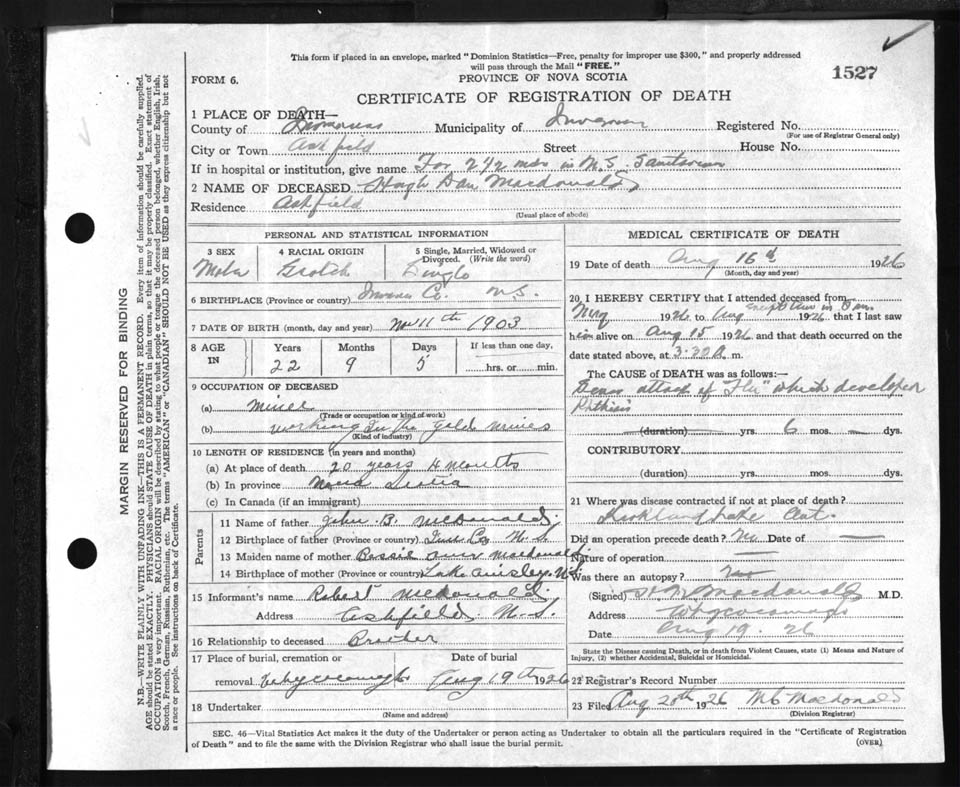 This form if placed in an envelope, marked "Dominion Statistics—Free, penalty for improper use $300," and properly addressed
will pass through the Mail "FREE."
FORM 6.
PROVINCE OF NOVA SCOTIA
1527
CERTIFICATE OF REGISTRATION OF DEATH
1 PLACE OF DEATH—
County of Inverness Municipality of Inverness Registered No.
(For use of Registrar General only)
City or Town Ashfield Street House No.
If in hospital or institution, give name For 2 1/2 mos in N.S. Sanitorium
2 NAME OF DECEASED Hugh Dan Macdonald
Residence Ashfield
(Usual place of abode)
PERSONAL AND STATISTICAL INFORMATION
3 SEX 4 RACIAL ORIGIN 5 Single, Married, Widowed or
Divorced. (Write the word)
Male Scotch Single
6 BIRTHPLACE (Province or country) Inverness Co. N.S.
7 DATE OF BIRTH (month, day and year) Nov 11th 1903
8 AGE IN Years Months Days If less than one day,
22 9 5 hrs. or min.
9 OCCUPATION OF DECEASED
(a) Miner
(Trade or occupation or kind of work)
(b) working In the gold mines
(Kind of industry)
10 LENGTH OF RESIDENCE (in years and months)
(a) At place of death 20 years 4 months
(b) In province Nova Scotia
(c) In Canada (if an immigrant)
Parents
11 Name of father John B. McDonald
12 Birthplace of father (Province or country) Inv Co N.S.
13 Maiden name of mother Bessie Ann Macdonald
14 Birthplace of mother (Province or country) Lake Ainslie, N.S.
15 Informant's name Robert McDonald
Address Ashfield N.S.
16 Relationship to deceased Brother
17 Place of burial, cremation or Date of burial
removal Whycocomagh Aug 19th 1926
18 Undertaker
(Name and address)
MEDICAL CERTIFICATE OF DEATH
19 Date of death Aug 16th 1926
(Month, day and year)
20 I HEREBY CERTIFY that I attended deceased from
1926 to Aug except time in San 1926 that I last saw
him alive on Aug 15 1926 and that death occurred on the
date stated above, at 3.30 A. m.
The CAUSE OF DEATH was as follows:—
attack of "Flu" which developed
Phthisis
(duration) yrs. 6 mos. — dys.
CONTRIBUTORY
(duration) yrs. mos. dys.
21 Where was disease contracted if not at place of death?
Kirkland Lake Ont.
Did an operation precede death? No Date of —
Nature of operation —
Was there an autopsy? No
(Signed) Macdonald M.D.
Address Whycocomagh
Date Aug 19. 26
State the Disease causing Death, or in death from Violent Causes, state (1) Means and Nature of
Injury, (2) whether Accidental, Suicidal or Homicidal.
22 Registrar's Record Number
23 Filed Aug 20th 1926 Macdonald
(Division Registrar)
SEC. 46—Vital Statistics Act makes it the duty of the Undertaker or person acting as Undertaker to obtain all the particulars required in the "Certificate of Registration
of Death" and to file the same with the Division Registrar who shall issue the burial permit.
(OVER)
MARGIN RESERVED FOR BINDING
N.B.—WRITE PLAINLY WITH UNFADING INK—THIS IS A PERMANENT RECORD. Every item of information should be carefully supplied.
AGE should be stated EXACTLY. PHYSICIANS should STATE CAUSE OF DEATH in plain terms, so that it may be properly classified. Exact statement of
OCCUPATION is very important. RACIAL ORIGIN will be described by stating to what people or tongue the deceased person belonged, whether English, Irish,
Scotch, French, German, Russian, Ruthenian, etc. The terms "AMERICAN" or "CANADIAN" SHOULD NOT BE USED as they express citizenship but not
a race or people. See instructions on back of Certificate.